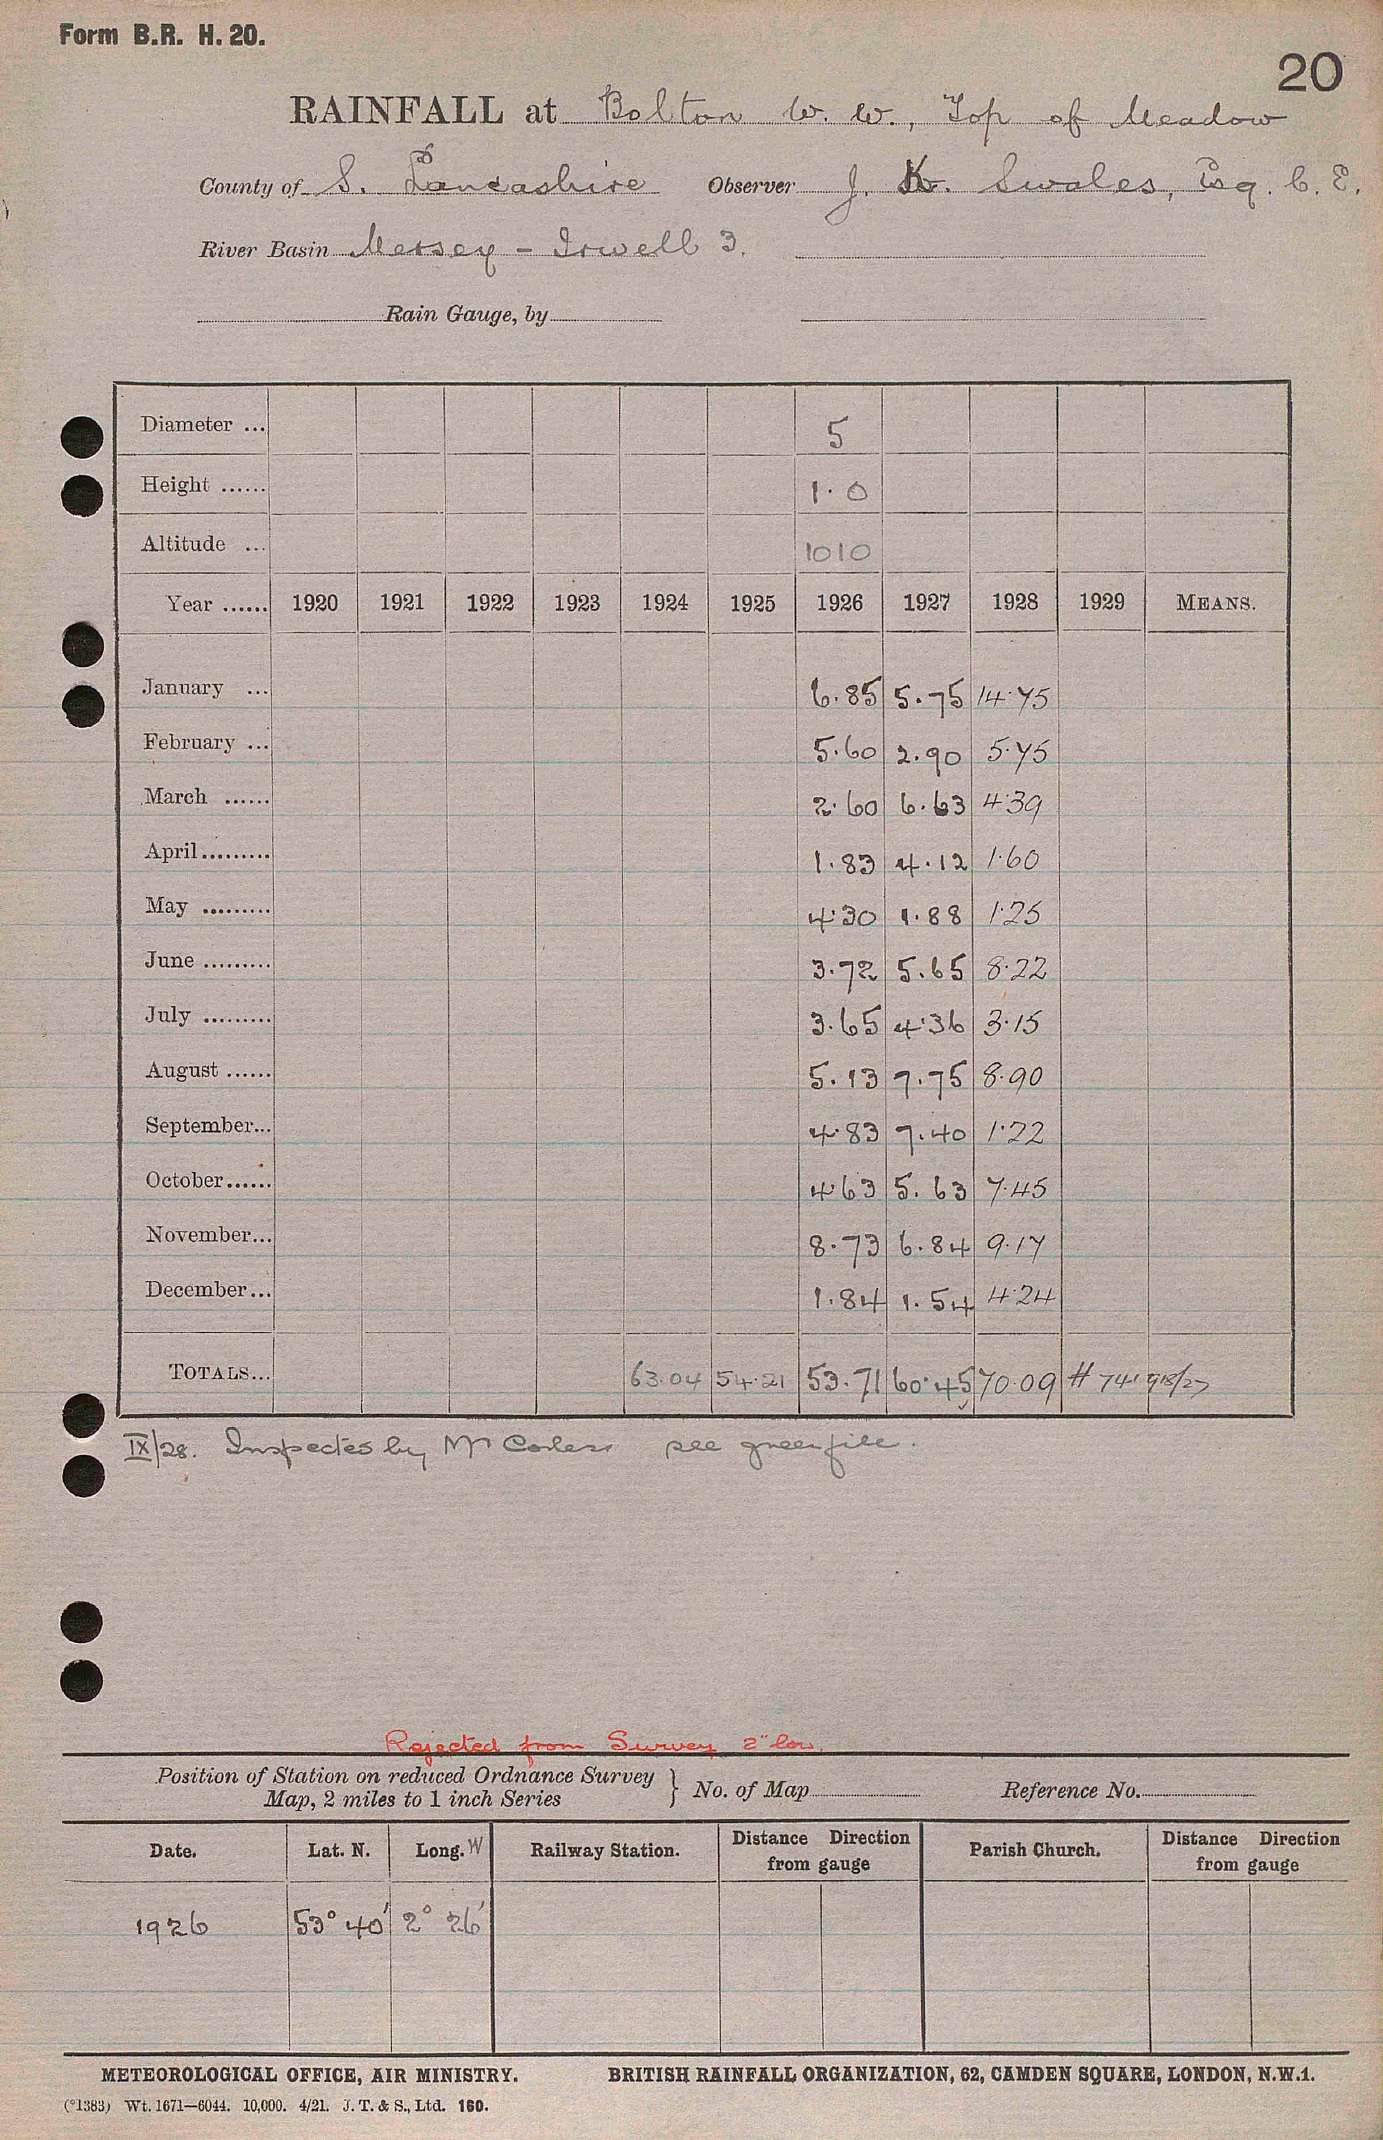 Form B.R. H. 20.
20
RAINFALL at Bolton W. W., Top of Meadow
County of S. Lancashire Observer J. K. Swales, Esq. C. E.
River Basin Mersey - Irwell 3.
Rain Gauge, by
Diameter ... 5
Height ...... 1.0
Altitude ... 1010
Year ...... 1920 1921 1922 1923 1924 1925 1926 1927 1928 1929 MEANS.
January ... 6.85 5.75 14.75
February ... 5.60 2.90 5.75
March ...... 2.60 6.63 4.39
April ......... 1.83 4.12 1.60
May ......... 4.30 1.88 1.25
June ......... 3.72 5.65 8.22
July ......... 3.65 4.36 3.15
August ...... 5.13 7.75 8.90
September... 4.83 7.40 1.22
October...... 4.63 5.63 7.45
November... 8.73 6.84 9.17
December... 1.84 1.54 4.24
TOTALS... 63.04 54.21 53.71 60.45 70.09
IX/28. Inspected by Mr see green file.
Rejected from Survey 2" low.
Position of Station on reduced Ordnance Survey
Map, 2 miles to 1 inch Series } No. of Map Reference No.
Date. Lat. N. Long. W Railway Station. Distance Direction from gauge Parish Church. Distance Direction from gauge
1926 53° 40' 2° 26'
METEOROLOGICAL OFFICE, AIR MINISTRY. BRITISH RAINFALL ORGANIZATION, 62, CAMDEN SQUARE, LONDON, N.W.1.
(*1383) Wt. 1671—6044. 10,000. 4/21. J. T. & S., Ltd. 160.